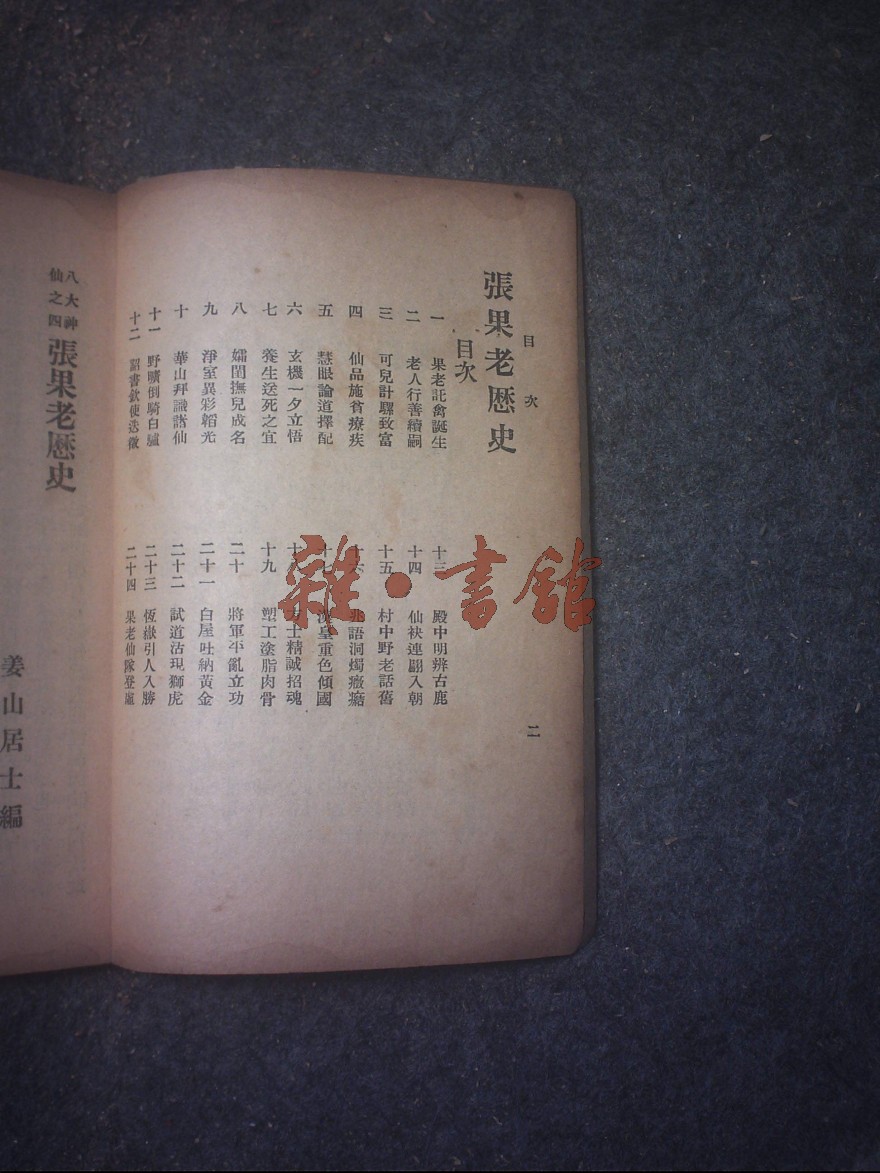 目次
張果老歷史
目次
一 果老託禽誕生
二 老人行善續嗣
三 可兒計騾致富
四 仙品施貧療疾
五 慧眼論道擇配
六 玄機一夕立悟
七 養生送死之宜
八 孀閨撫兒成名
九 淨室異彩韜光
十 華山拜識諸仙
十一 野曠倒騎白驢
十二 詔書欽使迭徵
十三 殿中明辨古鹿
十四 仙袂連翩入朝
十五 村中野老話舊
十六 語洞燭癥
十七 皇重色傾國
十八 士精誠招魂
十九 塑工塗脂肉骨
二十 將軍平亂立功
二十一 白屋吐納黃金
二十二 試道沾現獅虎
二十三 恆嶽引人入勝
二十四 果老仙隊登
二
八大神仙之四
張果老歷史
姜山居士編
雜·書館